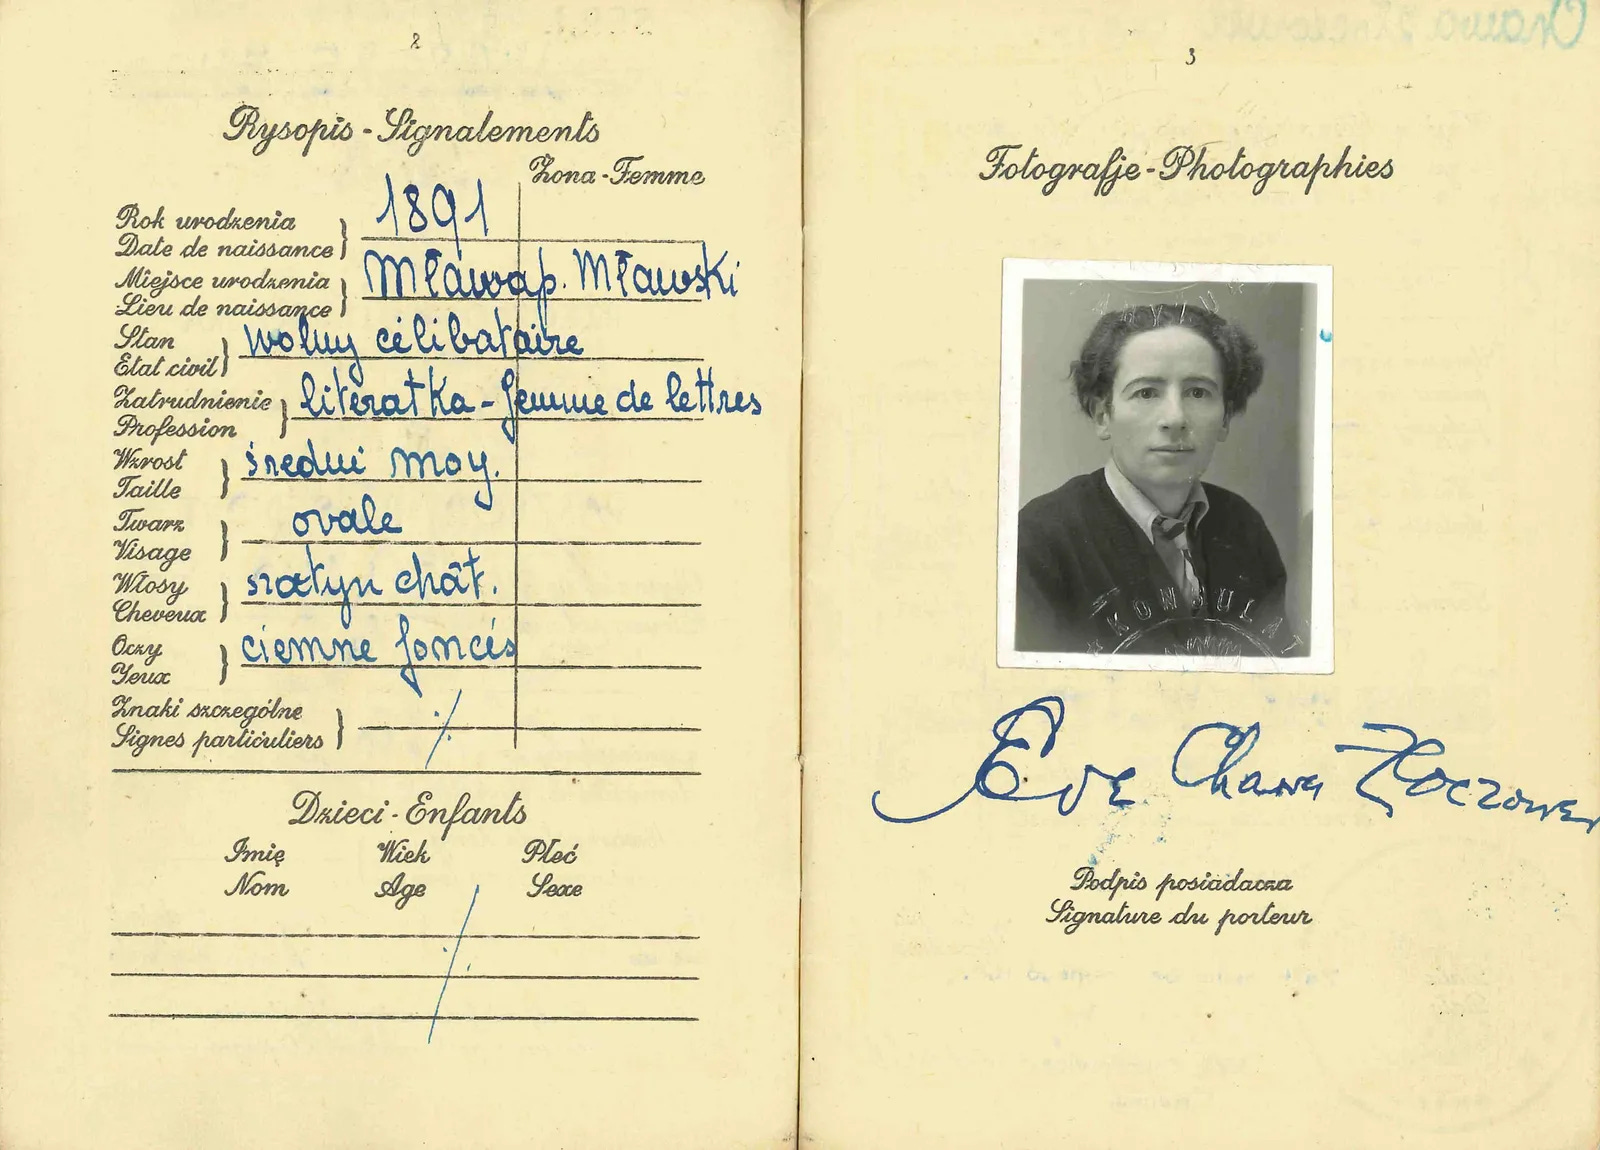 2
Rysopis - Signalements
Żona - Femme
Rok urodzenia
Date de naissance
1891
Miejsce urodzenia
Lieu de naissance
Mława p. Mławski
Stan
Etat civil
wolny célibataire
Zatrudnienie
Profession
literatka - femme de lettres
Wzrost
Taille
średni moy.
Twarz
Visage
ovale
Włosy
Cheveux
szatyn chât.
Oczy
Yeux
ciemne foncés
Znaki szczególne
Signes particuliers
./.
Dzieci - Enfants
Imię Wiek Płeć
Nom Age Sexe
./.
3
Fotografje - Photographies
KONSULAT
Eve Chawa Złoczower
Podpis posiadacza
Signature du porteur